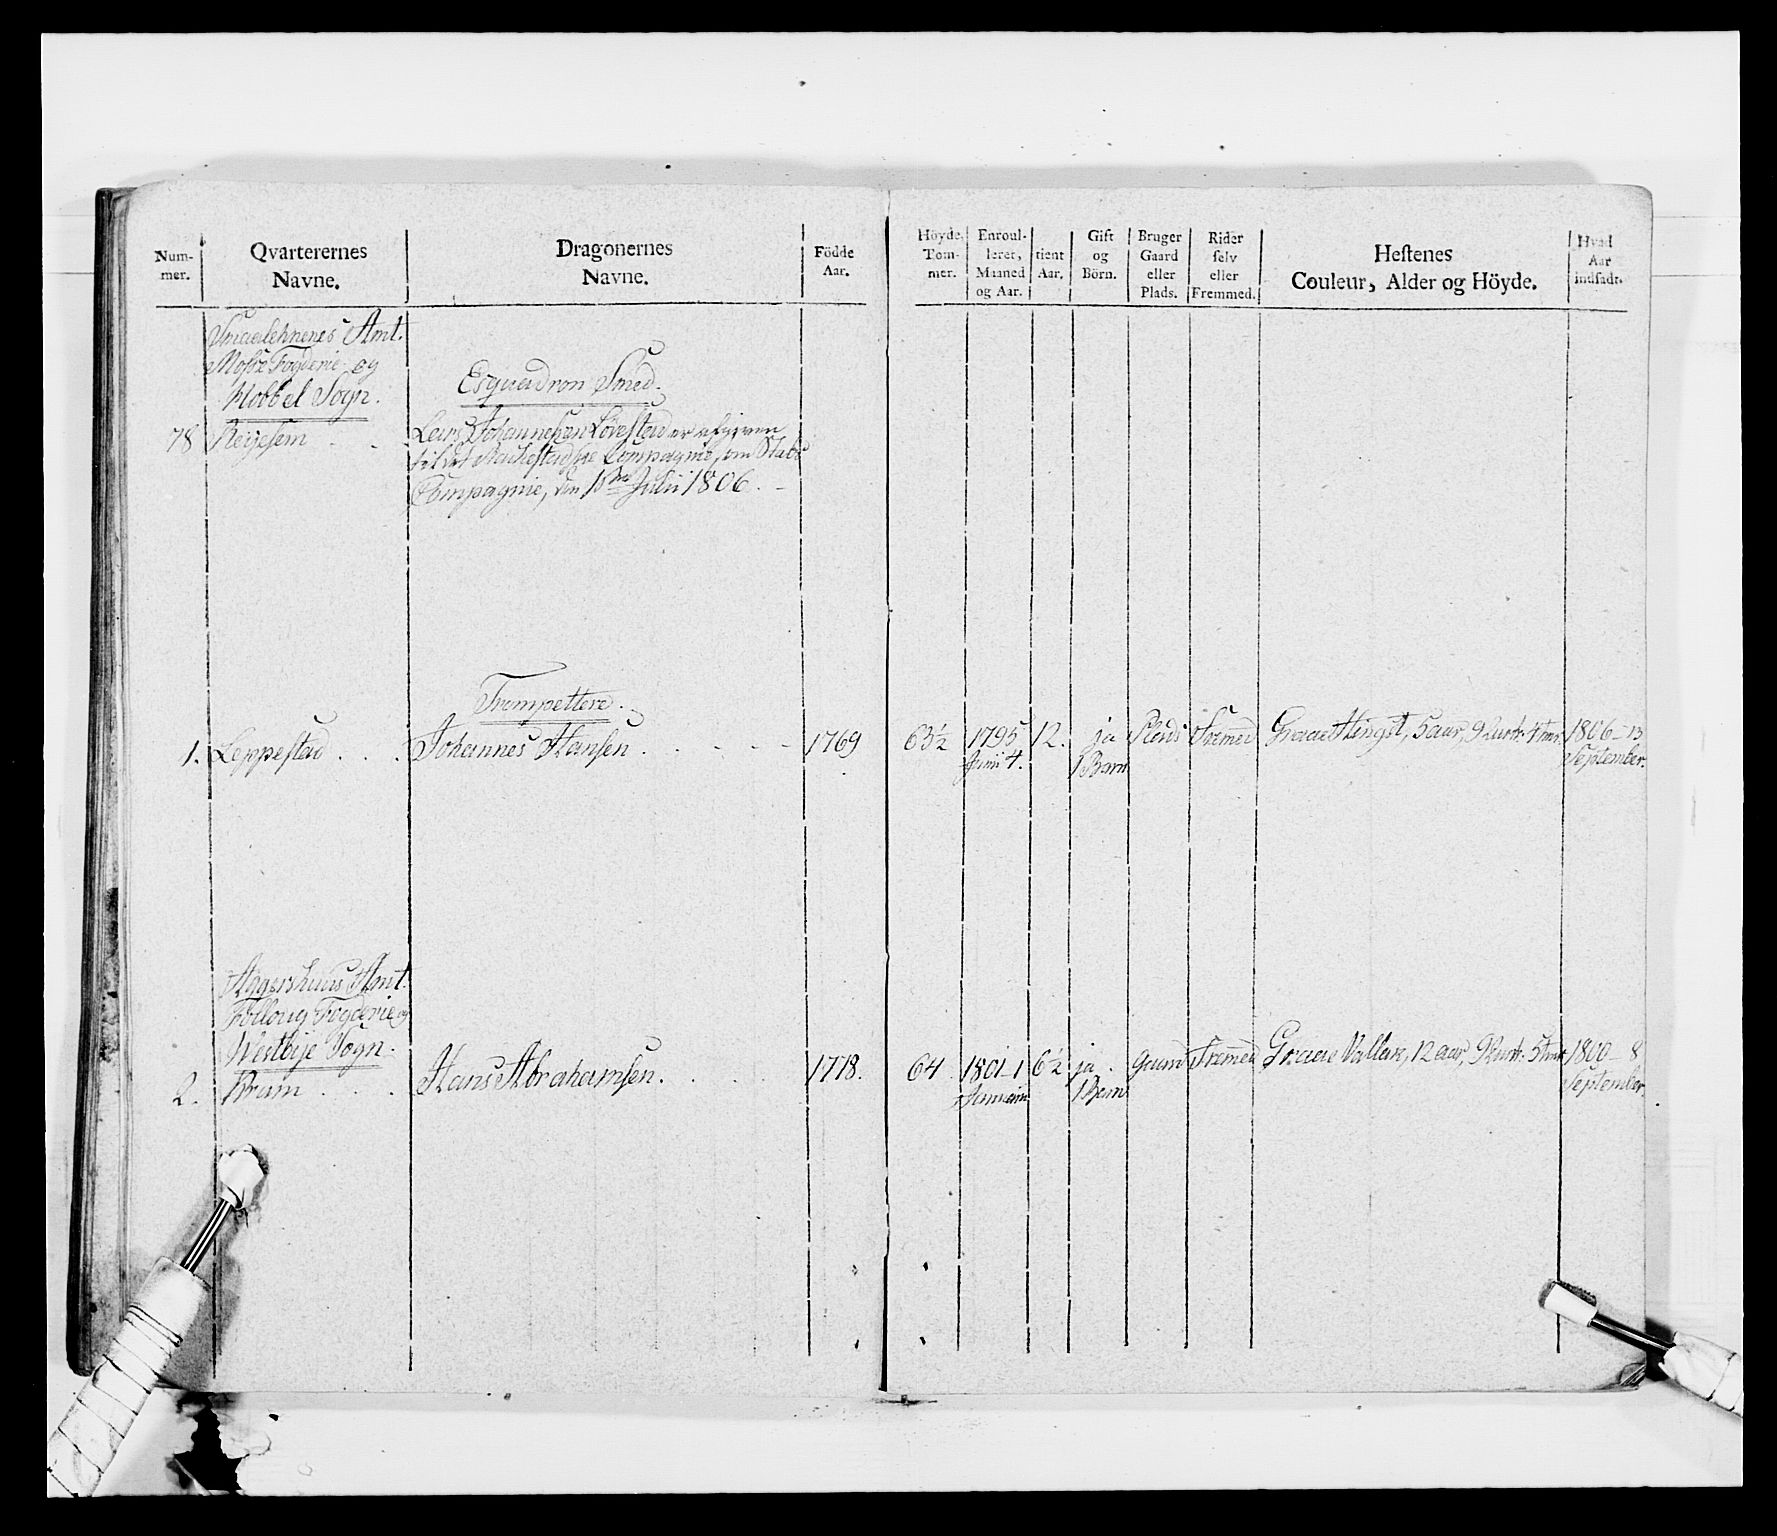 Num-
mer.
Qvarterernes
Navne.
Dragonernes
Navne.
Födde
Aar.
Höyde,
Tom-
mer.
Enroul-
leret,
Maaned
og Aar.
tient
Aar.
Gift
og
Börn.
Bruger
Gaard
eller
Plads.
Rider
selv
eller
Fremmed.
Hestenes
Couleur, Alder og Höyde.
Hvad
Aar
indsadt.
Smaalehnenes Amt.
Mosse Fogderie og
Hobbel Sogn.
Esquadron Smed.
78 Lars Johannesen Lövestad er afgiven
til det Compagnie, som Stabs
Compagnie, den Julii 1806.
Trompettere.
1. Leppestad . . . Johannes Hansen . . . . 1769 63½ 1795 12. ja Plads Fremed Graae Hingst, 5 aar, 9 Quart. 4 tm. 1806 - 13
Junii 4. 1 Barn September.
Aggershuus Amt.
Folloug Fogderie og
Westbye Sogn.
2. Kram . . . Hans Abrahamsen . . . . 1778. 64 1801 - 1 6½ ja . Gaard Fremed Graae Vallak, 12 aar, 9 Quart. 5 tm. 1800 - 8
Januarii 1 Barn September.